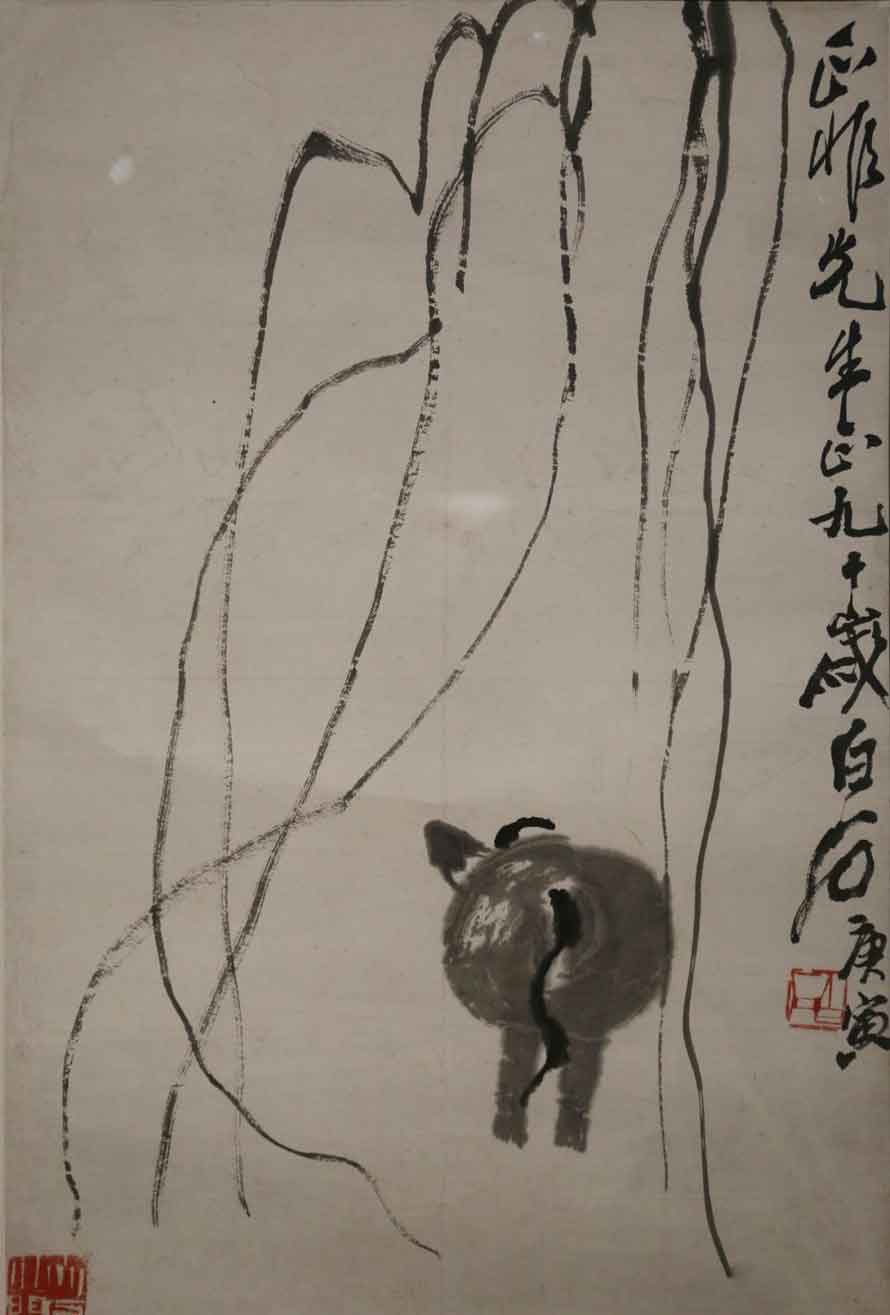 正惟先生正九十歲白石
庚寅